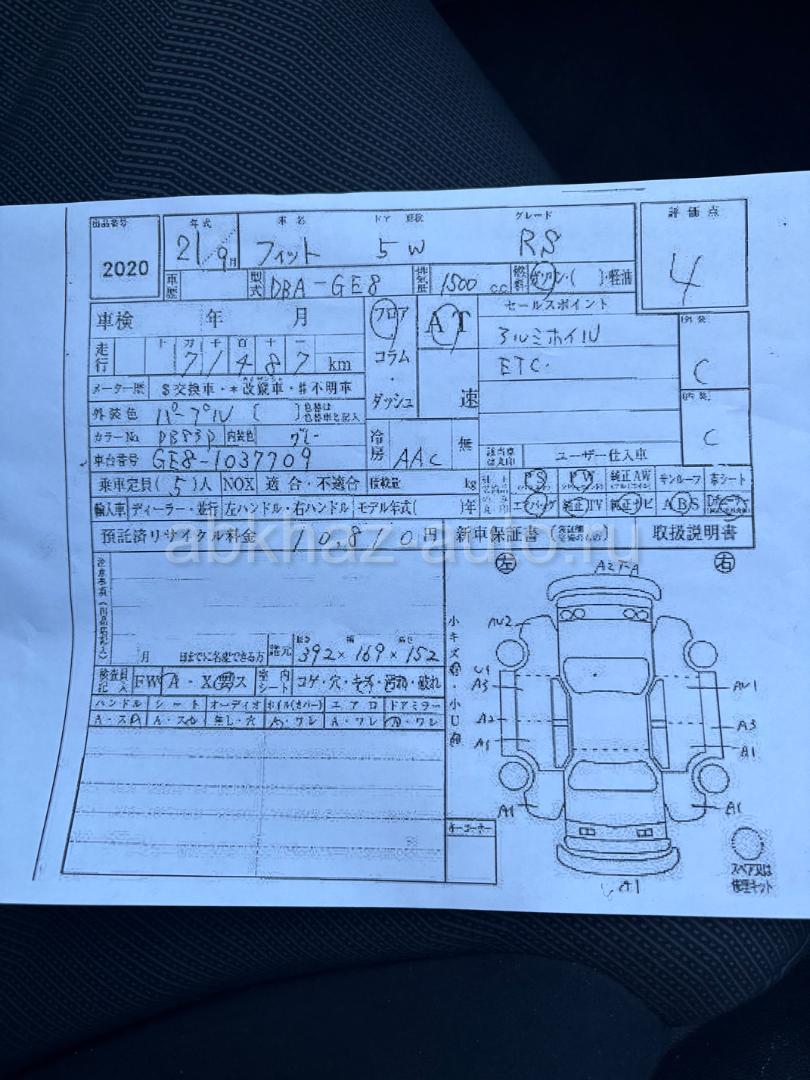 出品番号 年式 車名 ドア 形状 グレード 評価点
2020 21 9月 フィット 5W RS 4
車歴 型式 DBA-GE8 排気量 1500 C.C. 燃料 ガソリン・( )・軽油
車検 年 月 フロア AT セールスポイント 外装
走行 十 万 千 百 十 一 コラム アルミホイル C
71487 km ・ ETC.
メーター歴 $交換車・*改ざん車・#不明車 ダッシュ 速 内装
外装色 パープル ( ) C
カラーNo. PB83P 内装色 グレー 冷房 AAC 無
車台番号 GE8-1037709 該当車は丸印 ユーザー仕入車
乗車定員(5)人 NOX 適合・不適合 積載量 kg PS PW 純正AW サンルーフ 革シート
輸入車 ディーラー・並行 左ハンドル・右ハンドル モデル年式( )年 エアバッグ 純正TV 純正ナビ ABS
預託済リサイクル料金 10,810 円 新車保証書 取扱説明書
abkhaz-auto.ru
左 右
注意事項
月 日までに名変できる方 諸元 長さ 幅 高さ 392×169×152
検査員記入 FW A・X 室内シート コゲ・穴・キズ・汚れ・破れ
ハンドル シート オーディオ ホイル(カバー) エアロ ドアミラー
A・スレ A・スレ 無し・穴 A・ワレ A・ワレ A・ワレ
小キズ・小凹
AU2
A3 AU1
A2 A3
A1 A1
A1 A1
A1
キーコーナー
スペア又は
修理キット